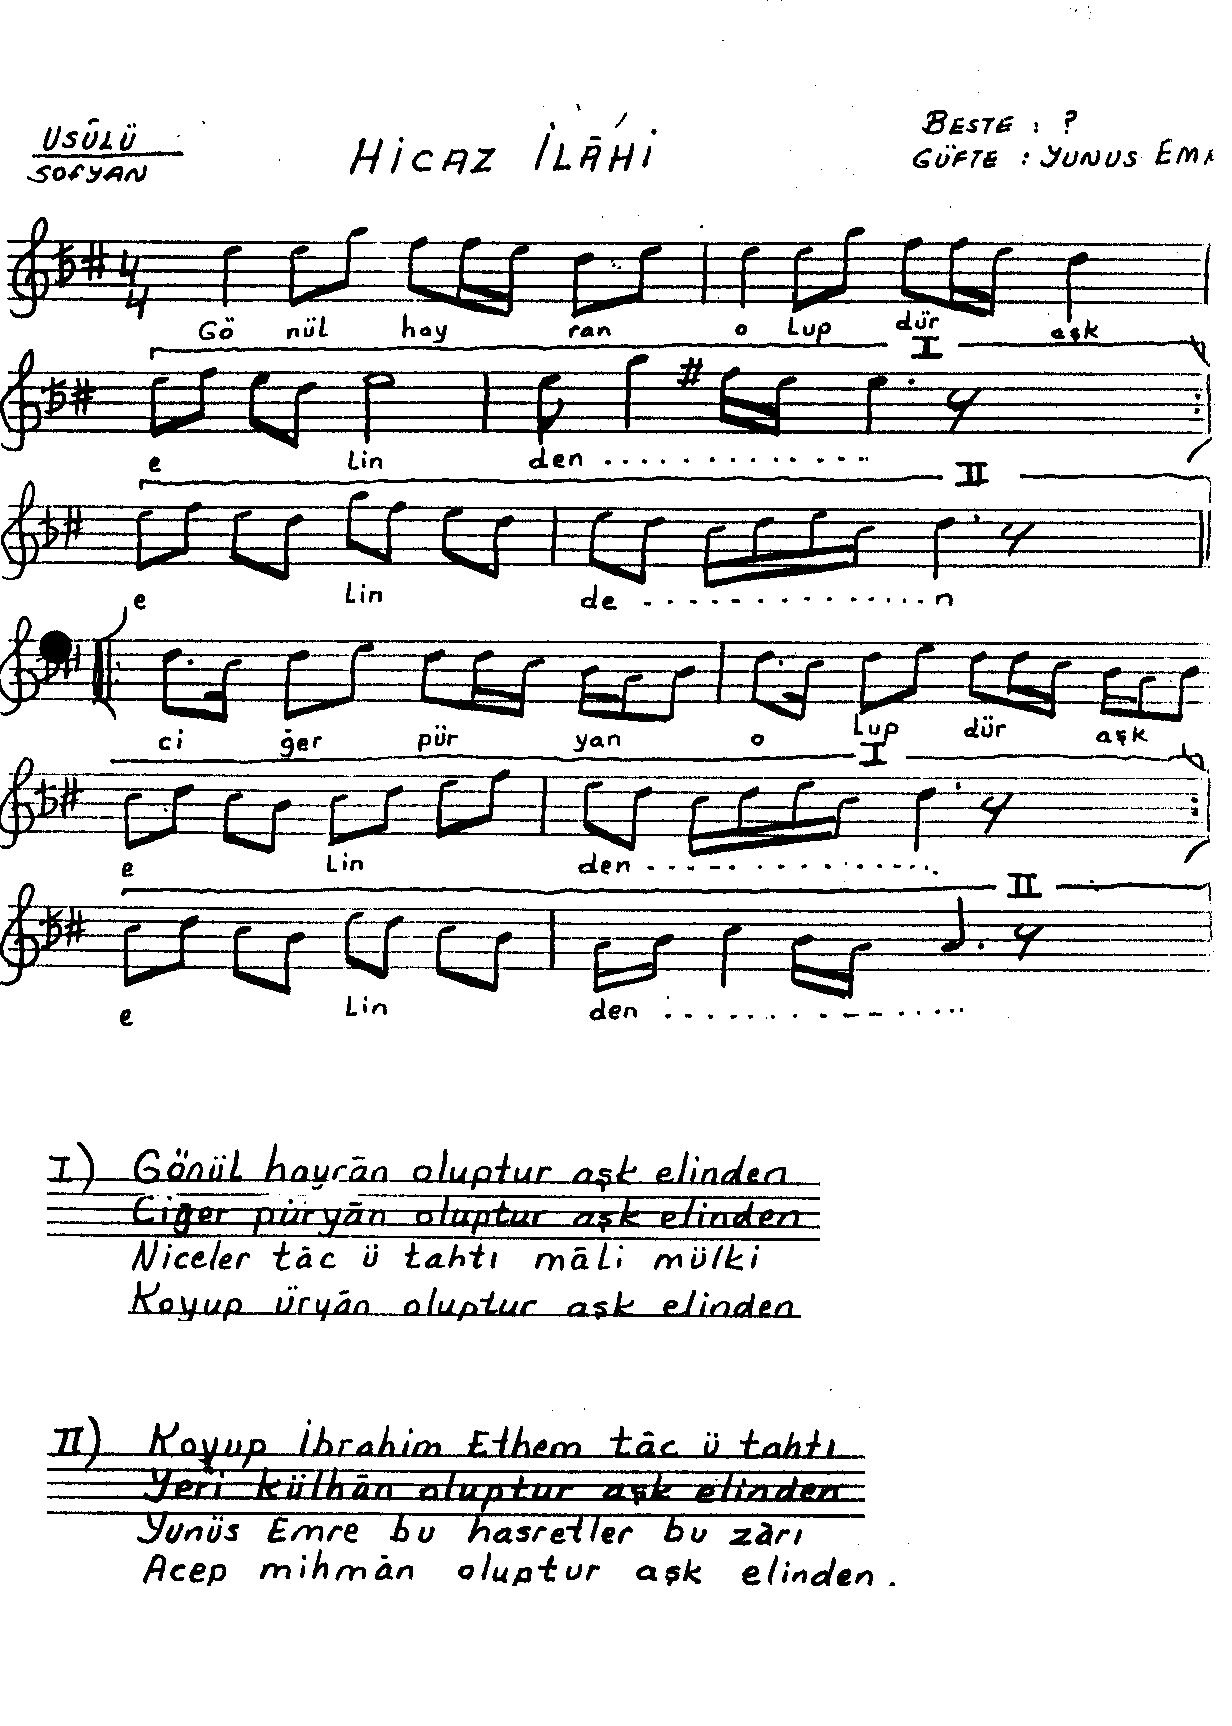 USÛLÜ
SOFYAN
HİCAZ İLÂHİ
BESTE : ?
GÜFTE : YUNUS EMR
4
4
Gö nül hay ran o Lup dür aşk
I
e Lin den ..............
II
e Lin de ..............n
ci ğer pür yan o Lup dür aşk
I
e Lin den ..............
II
e Lin den ..............
I) Gönül hayrān oluptur aşk elinden
Ciğer püryān oluptur aşk elinden
Niceler tāc ü tahtı māli mülki
Koyup üryān oluptur aşk elinden
II) Koyup İbrahim Ethem tāc ü tahtı
Yeri külhān oluptur aşk elinden
Yunüs Emre bu hasretler bu zārı
Acep mihmān oluptur aşk elinden.